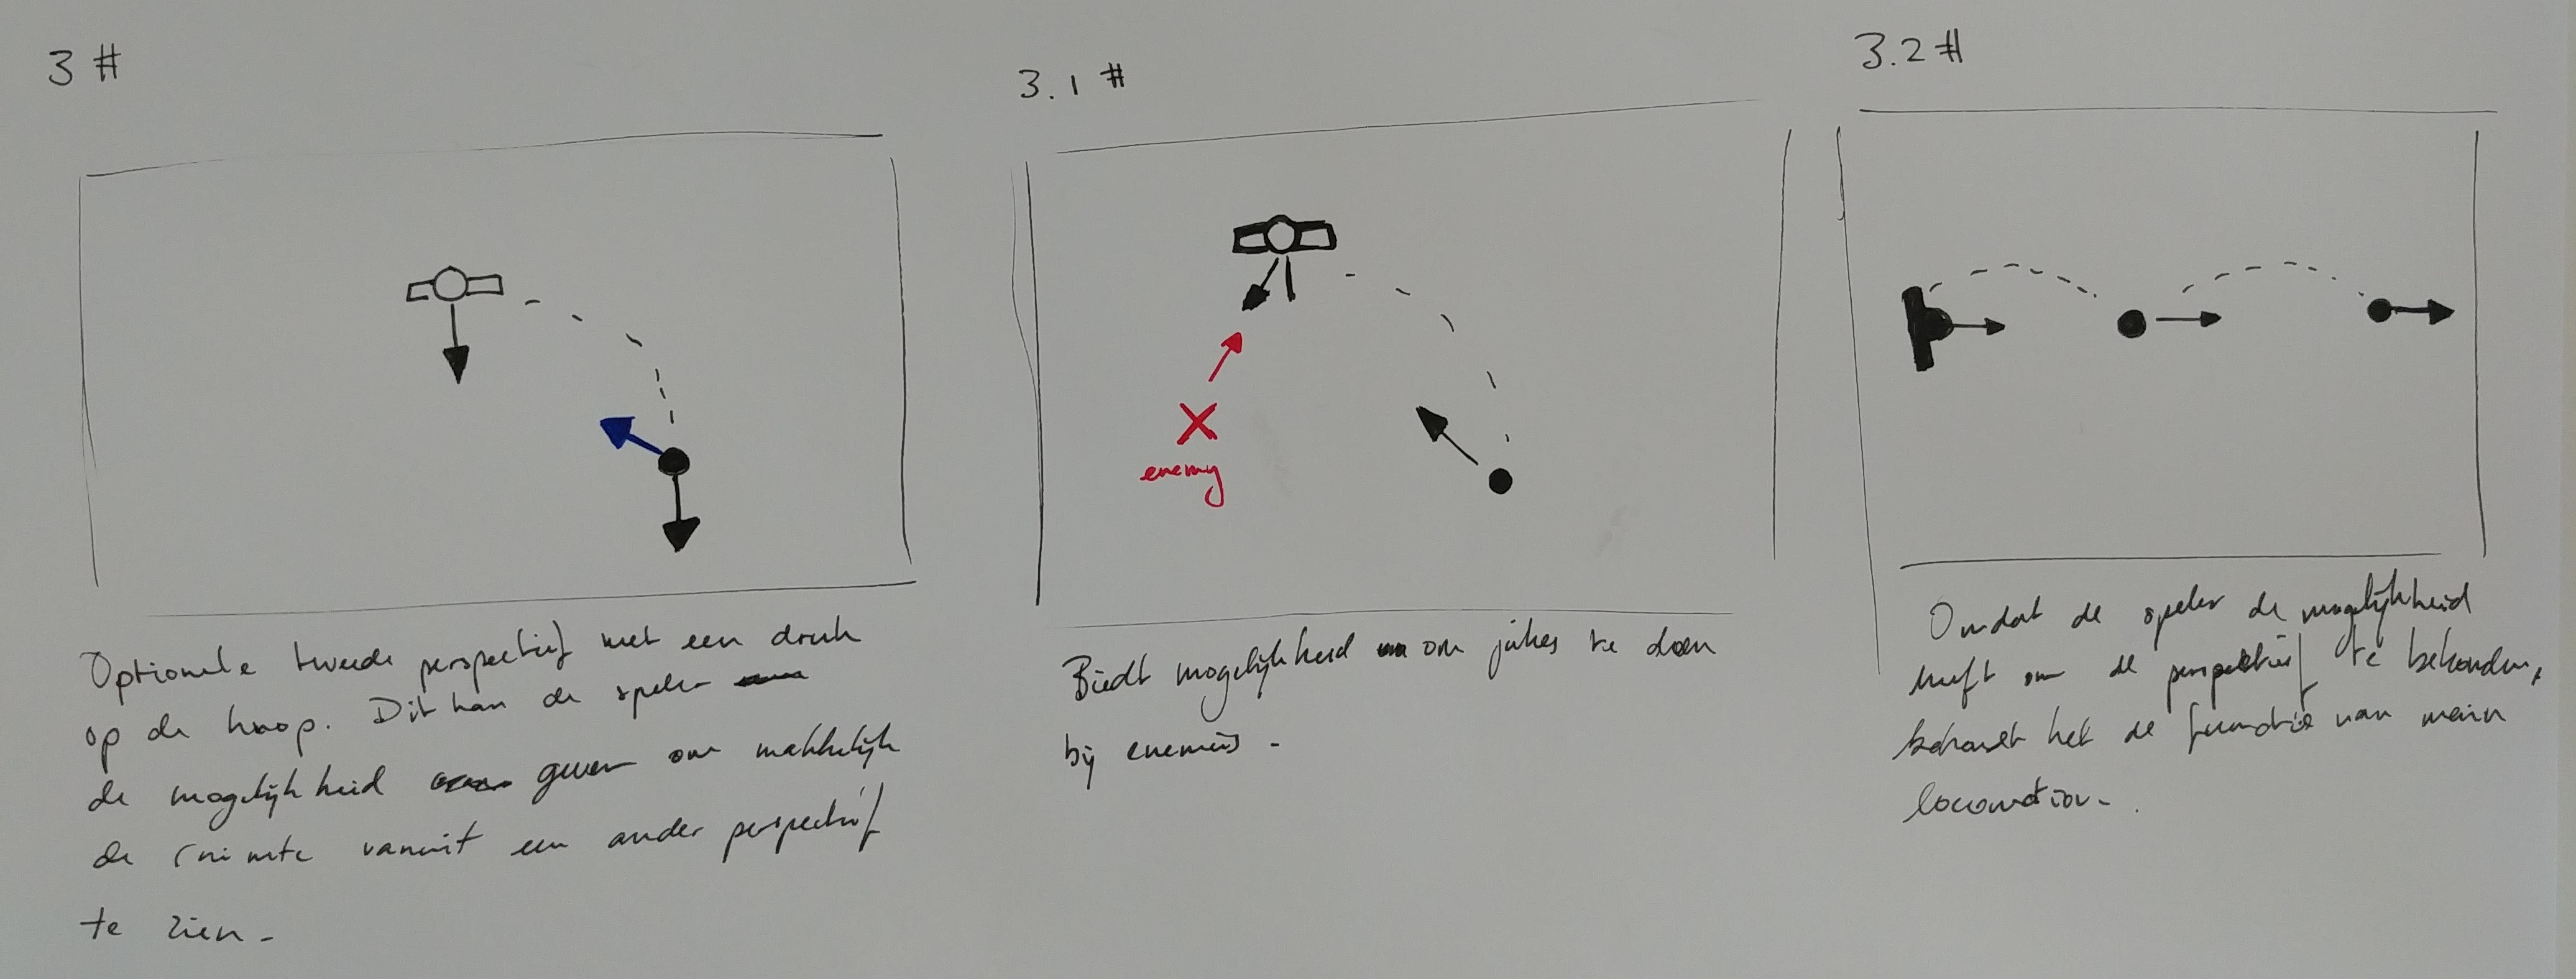 3 #
Optionele tweede perspectief met een druk
op de knop. Dit kan de speler
de mogelijkheid geven om makkelijk
de ruimte vanuit een ander perspectief
te zien.
3.1 #
enemy
Biedt mogelijkheid om jukes te doen
bij enemies.
3.2 #
Omdat de speler de mogelijkheid
heeft om de perspectief te behouden,
behoudt het de functie van main
locomotion.